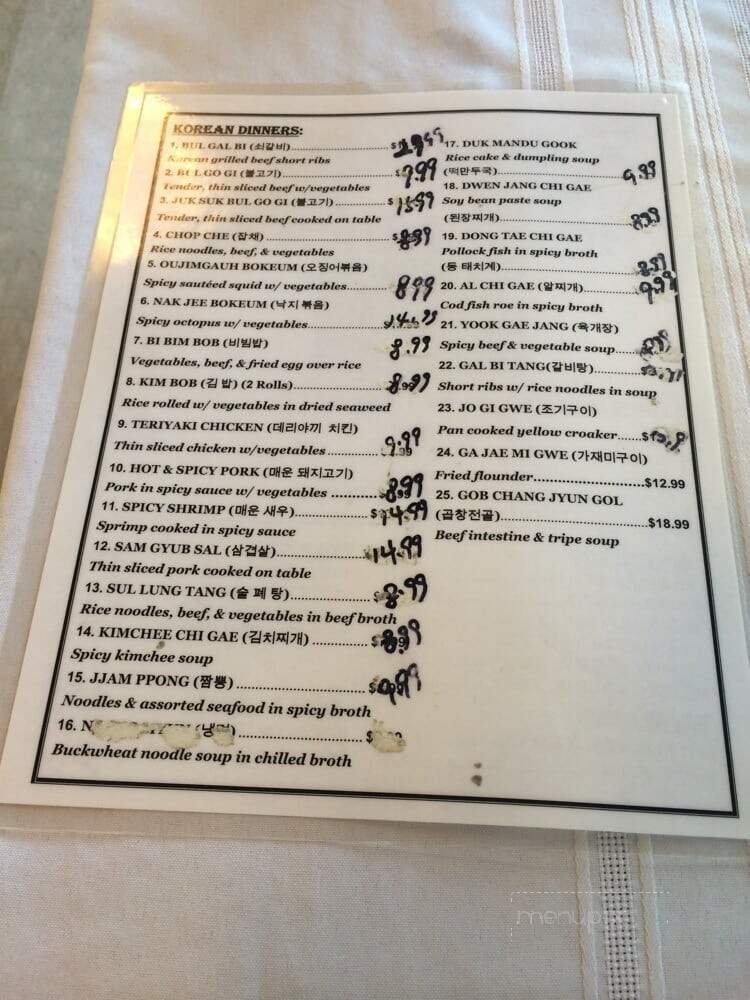 KOREAN DINNERS:
1. BUL GAL BI (쇠갈비)
Korean grilled beef short ribs
2. BUL GO GI (불고기) 9.99
Tender, thin sliced beef w/vegetables
3. JUK SUK BUL GO GI (불고기) $15.99
Tender, thin sliced beef cooked on table
4. CHOP CHE (잡채) $8.99
Rice noodles, beef, & vegetables
5. OUJIMGAUH BOKEUM (오징어볶음)
Spicy sautéed squid w/ vegetables 8.99
6. NAK JEE BOKEUM (낙지 볶음)
Spicy octopus w/ vegetables 14.99
7. BI BIM BOB (비빔밥) 8.99
Vegetables, beef, & fried egg over rice
8. KIM BOB (김 밥) (2 Rolls) 8.99
Rice rolled w/ vegetables in dried seaweed
9. TERIYAKI CHICKEN (데리야끼 치킨)
Thin sliced chicken w/vegetables 9.99
10. HOT & SPICY PORK (매운 돼지고기)
Pork in spicy sauce w/ vegetables 8.99
11. SPICY SHRIMP (매운 새우) $14.99
Sprimp cooked in spicy sauce
12. SAM GYUB SAL (삼겹살) 14.99
Thin sliced pork cooked on table
13. SUL LUNG TANG (술 폐 탕) $8.99
Rice noodles, beef, & vegetables in beef broth
14. KIMCHEE CHI GAE (김치찌개) $8.99
Spicy kimchee soup
15. JJAM PPONG (짬뽕) $9.99
Noodles & assorted seafood in spicy broth
16. $
Buckwheat noodle soup in chilled broth
17. DUK MANDU GOOK
Rice cake & dumpling soup
(떡만두국) 9.99
18. DWEN JANG CHI GAE
Soy bean paste soup
(된장찌개) 8.99
19. DONG TAE CHI GAE
Pollock fish in spicy broth
(동 태치게) 8.99
20. AL CHI GAE (알찌개) 9.99
Cod fish roe in spicy broth
21. YOOK GAE JANG (육개장)
Spicy beef & vegetable soup
22. GAL BI TANG(갈비탕)
Short ribs w/ rice noodles in soup
23. JO GI GWE (조기구이)
Pan cooked yellow croaker
24. GA JAE MI GWE (가재미구이)
Fried flounder $12.99
25. GOB CHANG JYUN GOL
(곱창전골) $18.99
Beef intestine & tripe soup